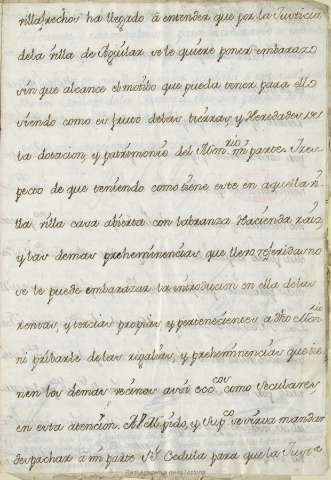 villafrechos ha llegado à entender que por la Justicia
dela villa de Aguilar se le quiere poner embarazo
sin que alcance el motibo que pueda tener para ello
siendo como es fruto delas tierras, y Heredades
ta dotacion, y patrimonio del Mon.rio mi parte
pecto de que teniendo como tiene este en aquella
villa casa abierta con labranza Hacienda raiz
y las demas prehemininencias que llevo referidas no
se le puede embarazar la introducion en ella delas
rentas, y tercias propias, y pertenecientes a dho Mon.rio
ni pribarle delas regalias, y prehemininencias que tie
nen los demas vecinos assi ecc.cos como seculares,
en esta atencion. A V.A. pido, y Sup.co se sirva mandar
despachar à mi parte Rl Cedula para que la Juste
Real Academia de la Historia